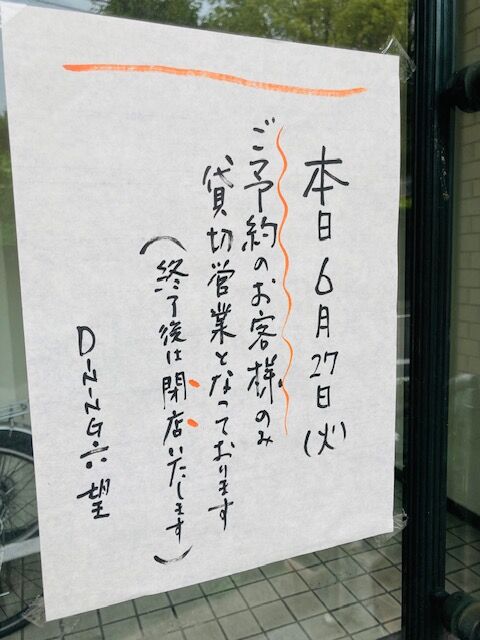 本日6月27日(火)
ご予約のお客様のみ
貸切営業となっております
(終了後は閉店いたします)
DINING六望